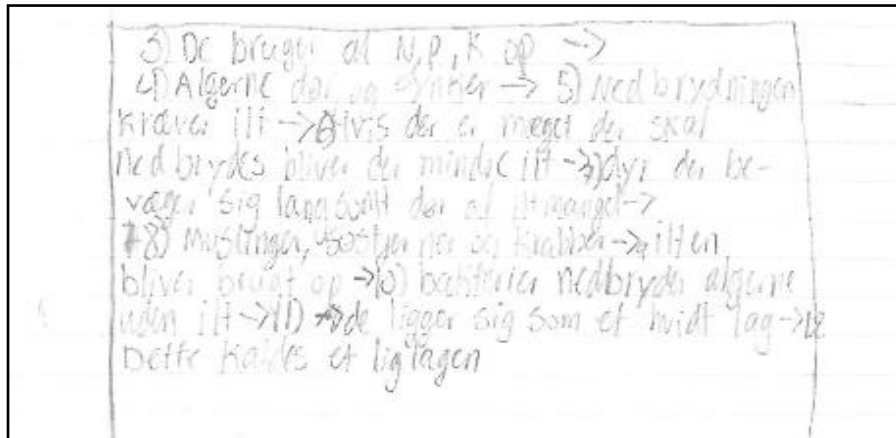 3) De bruger al N,P,K op →
4) Algerne dør og synker → 5) Nedbrydningen
kræver ilt → 6) Hvis der er meget der skal
nedbrydes bliver der mindre ilt → 7) dyr der be-
væger sig langsomt dør af iltmangel →
8) Muslinger, søstjerner og krabber → ilten
bliver brugt op → 10) bakterier nedbryder algerne
uden ilt → 11) de ligger sig som et hvidt lag → 12
Dette kaldes et liglagen